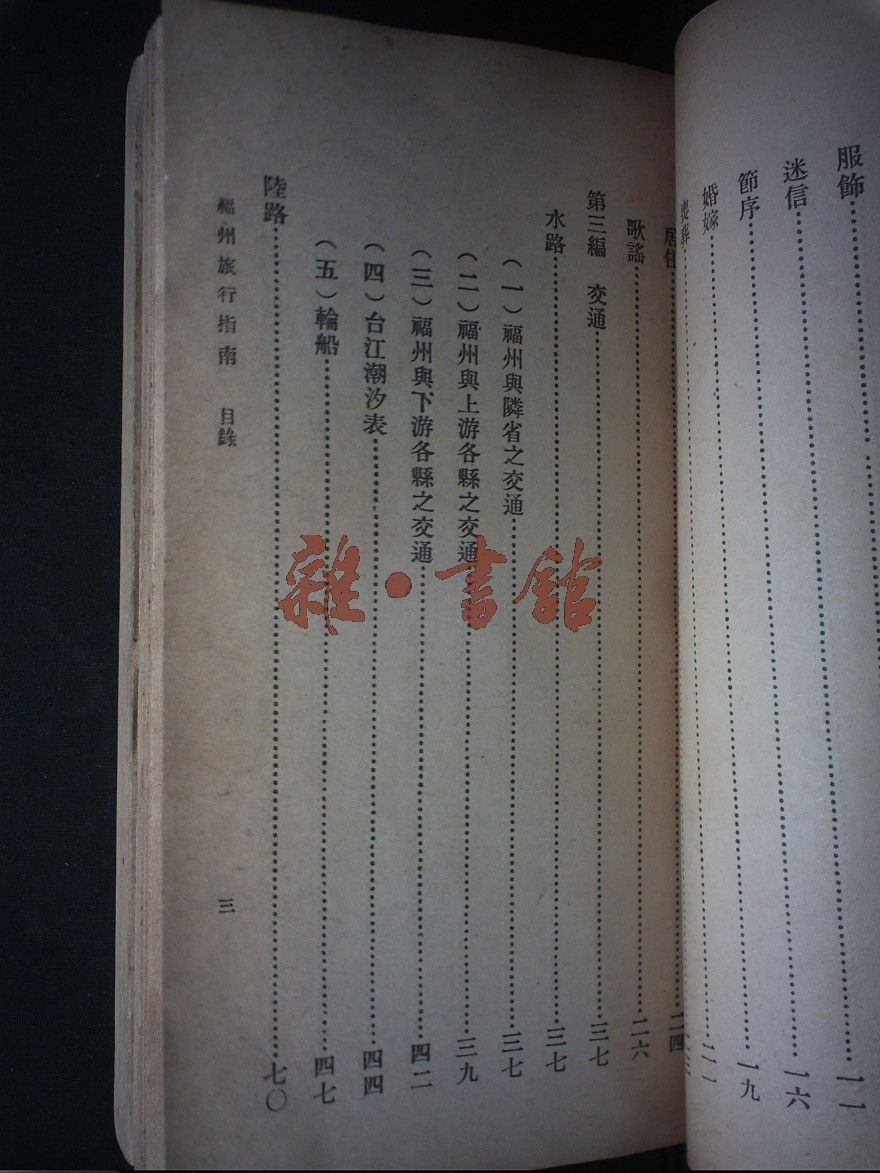 服飾……一一
迷信……一六
節序……一九
婚嫁……二一
喪葬……二三
居住……二四
歌謠……二六
第三編　交通……三七
水路……三七
（一）福州與隣省之交通……三七
（二）福州與上游各縣之交通……三九
（三）福州與下游各縣之交通……四二
（四）台江潮汐表……四四
（五）輪船……四七
陸路……七〇
福州旅行指南　目錄
三
雜·書館